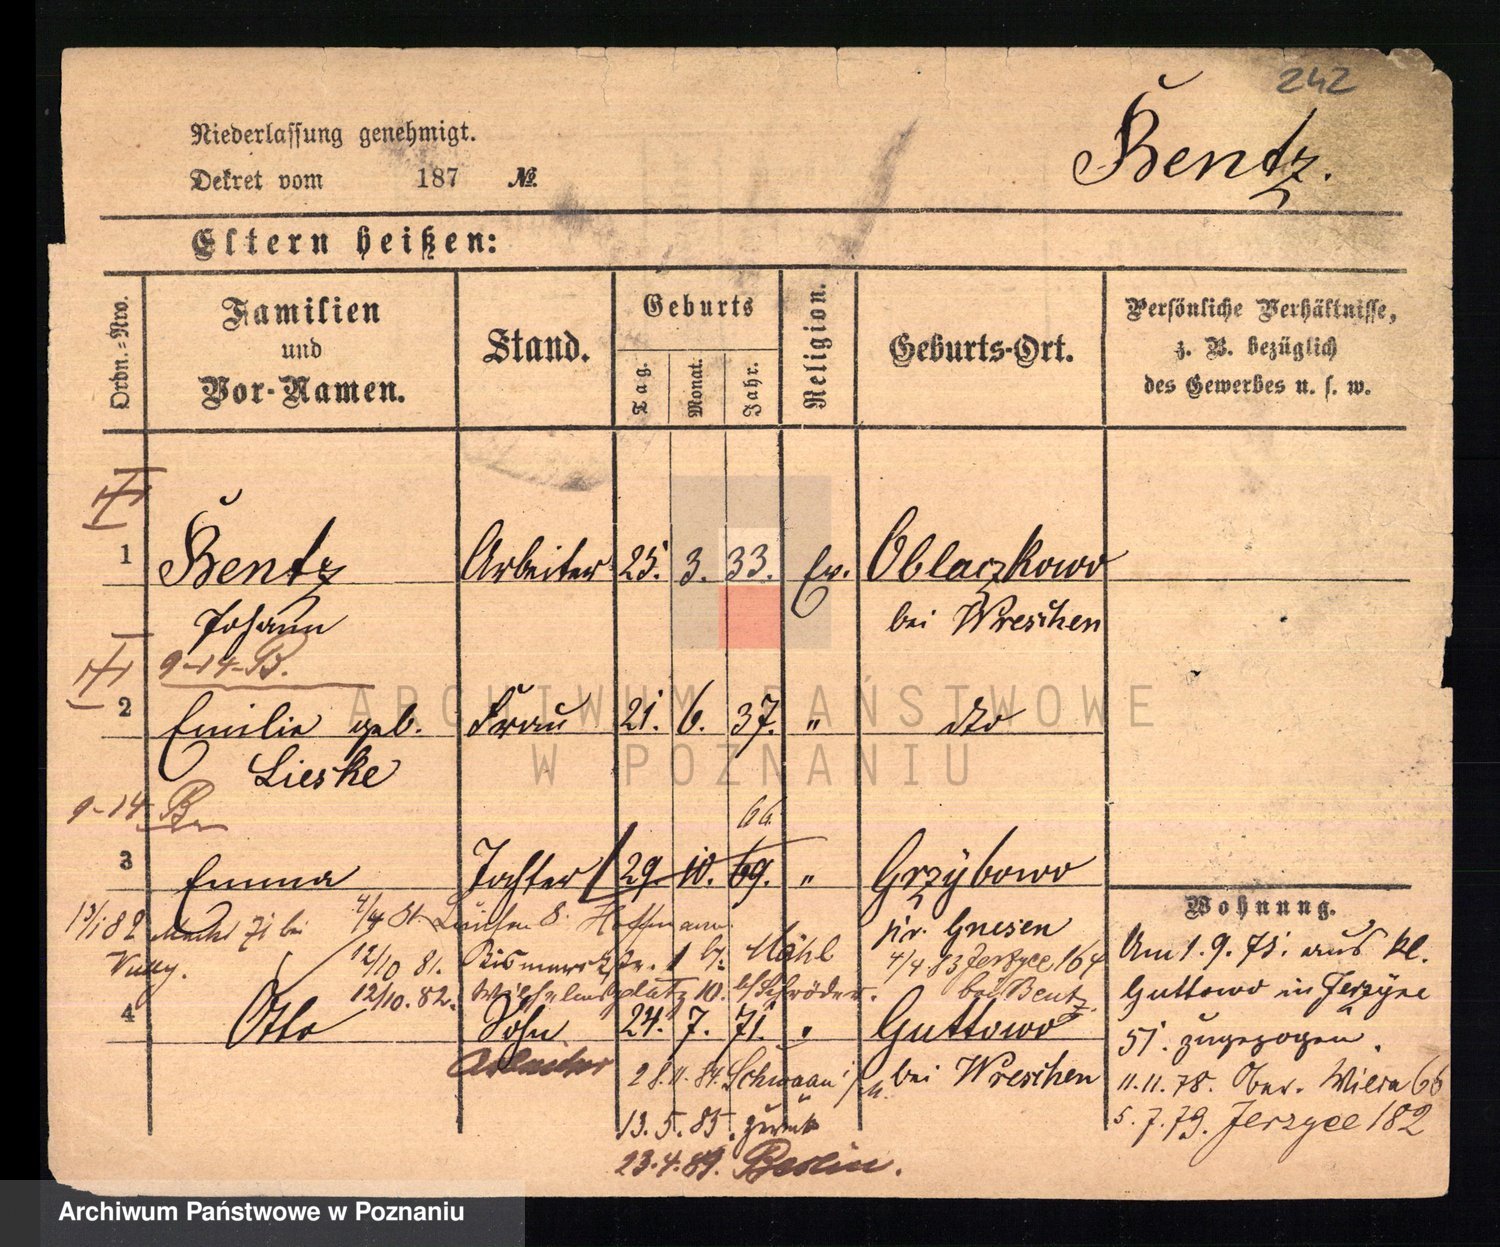 242
Niederlassung genehmigt.
Bentz.
Dekret vom 187 №.
Eltern heißen:
Ordn.=Nro.
Familien und Vor-Namen.
Stand.
Geburts
Tag.
Monat.
Jahr.
Religion.
Geburts-Ort.
Persönliche Verhältnisse,
z. B. bezüglich
des Gewerbes u. s. w.
1 Bentz Arbeiter 25. 3. 33. Ev. Oblaczkowo
Johann bei Wreschen
9-14-B.
2 Emilie geb. Frau 21. 6. 37. " dto
Lieske
ARCHIWUM PAŃSTWOWE
W POZNANIU
9-14 B
66
3 Emma Tochter 29. 10. 69. " Grzybowo
Wohnung.
13/1 82 4/4 81 8. Hoffmann pr. Gnesen
Am 1. 9. 75. aus Kl.
12/10 81. Bismarckstr. 1 b. 4/4 83 Jerzyce 164
12/10. 82. Wilhelmsplatz 10. b/Schröder. bei Bentz
Guttowo in Jerzyce
4 Otto Sohn 24. 7. 71. " Guttowo
51. zugezogen.
Arbeiter 28. 11. 84. Schwaan i/M. bei Wreschen
11. 11. 78. Ober. Wilda 66
13. 5. 85. zurück
5. 7. 79. Jerzyce 182
23. 4. 89. Berlin.
Archiwum Państwowe w Poznaniu